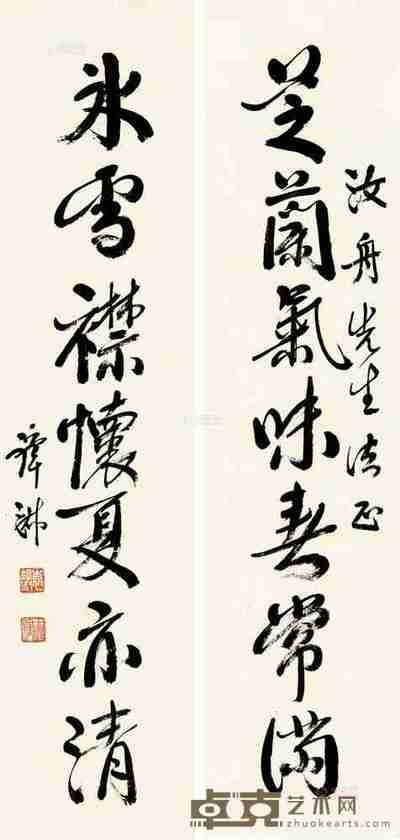 芝蘭氣味春常滿
汝舟先生法正
冰雪襟懷夏亦清
卓克艺术网
zhuokearts.com